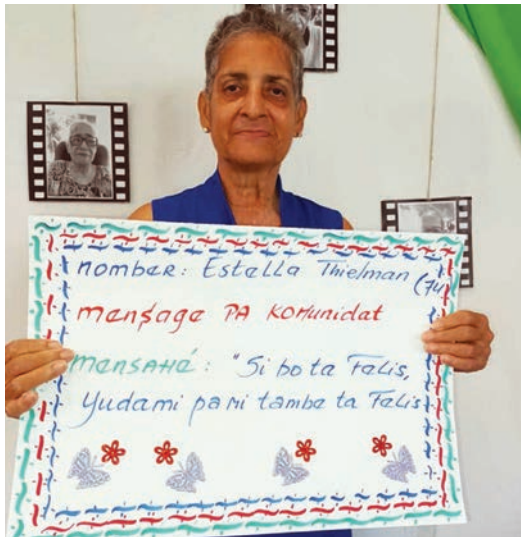 nomber: Estella Thielman (74)
mensage PA KOMUnidat
mensAHé: "Si bo ta Felis,
Yudami pa mi tambe ta Felis